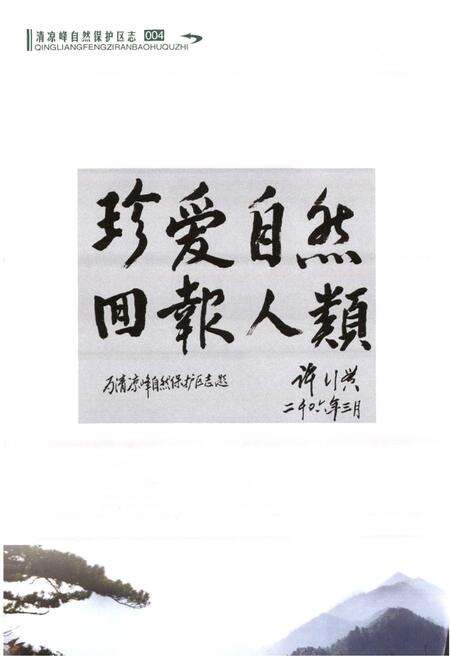 清凉峰自然保护区志 004
QINGLIANGFENGZIRANBAOHUQUZHI
珍爱自然
回報人類
为清凉峰自然保护区志题
许行贵
二〇〇六年三月